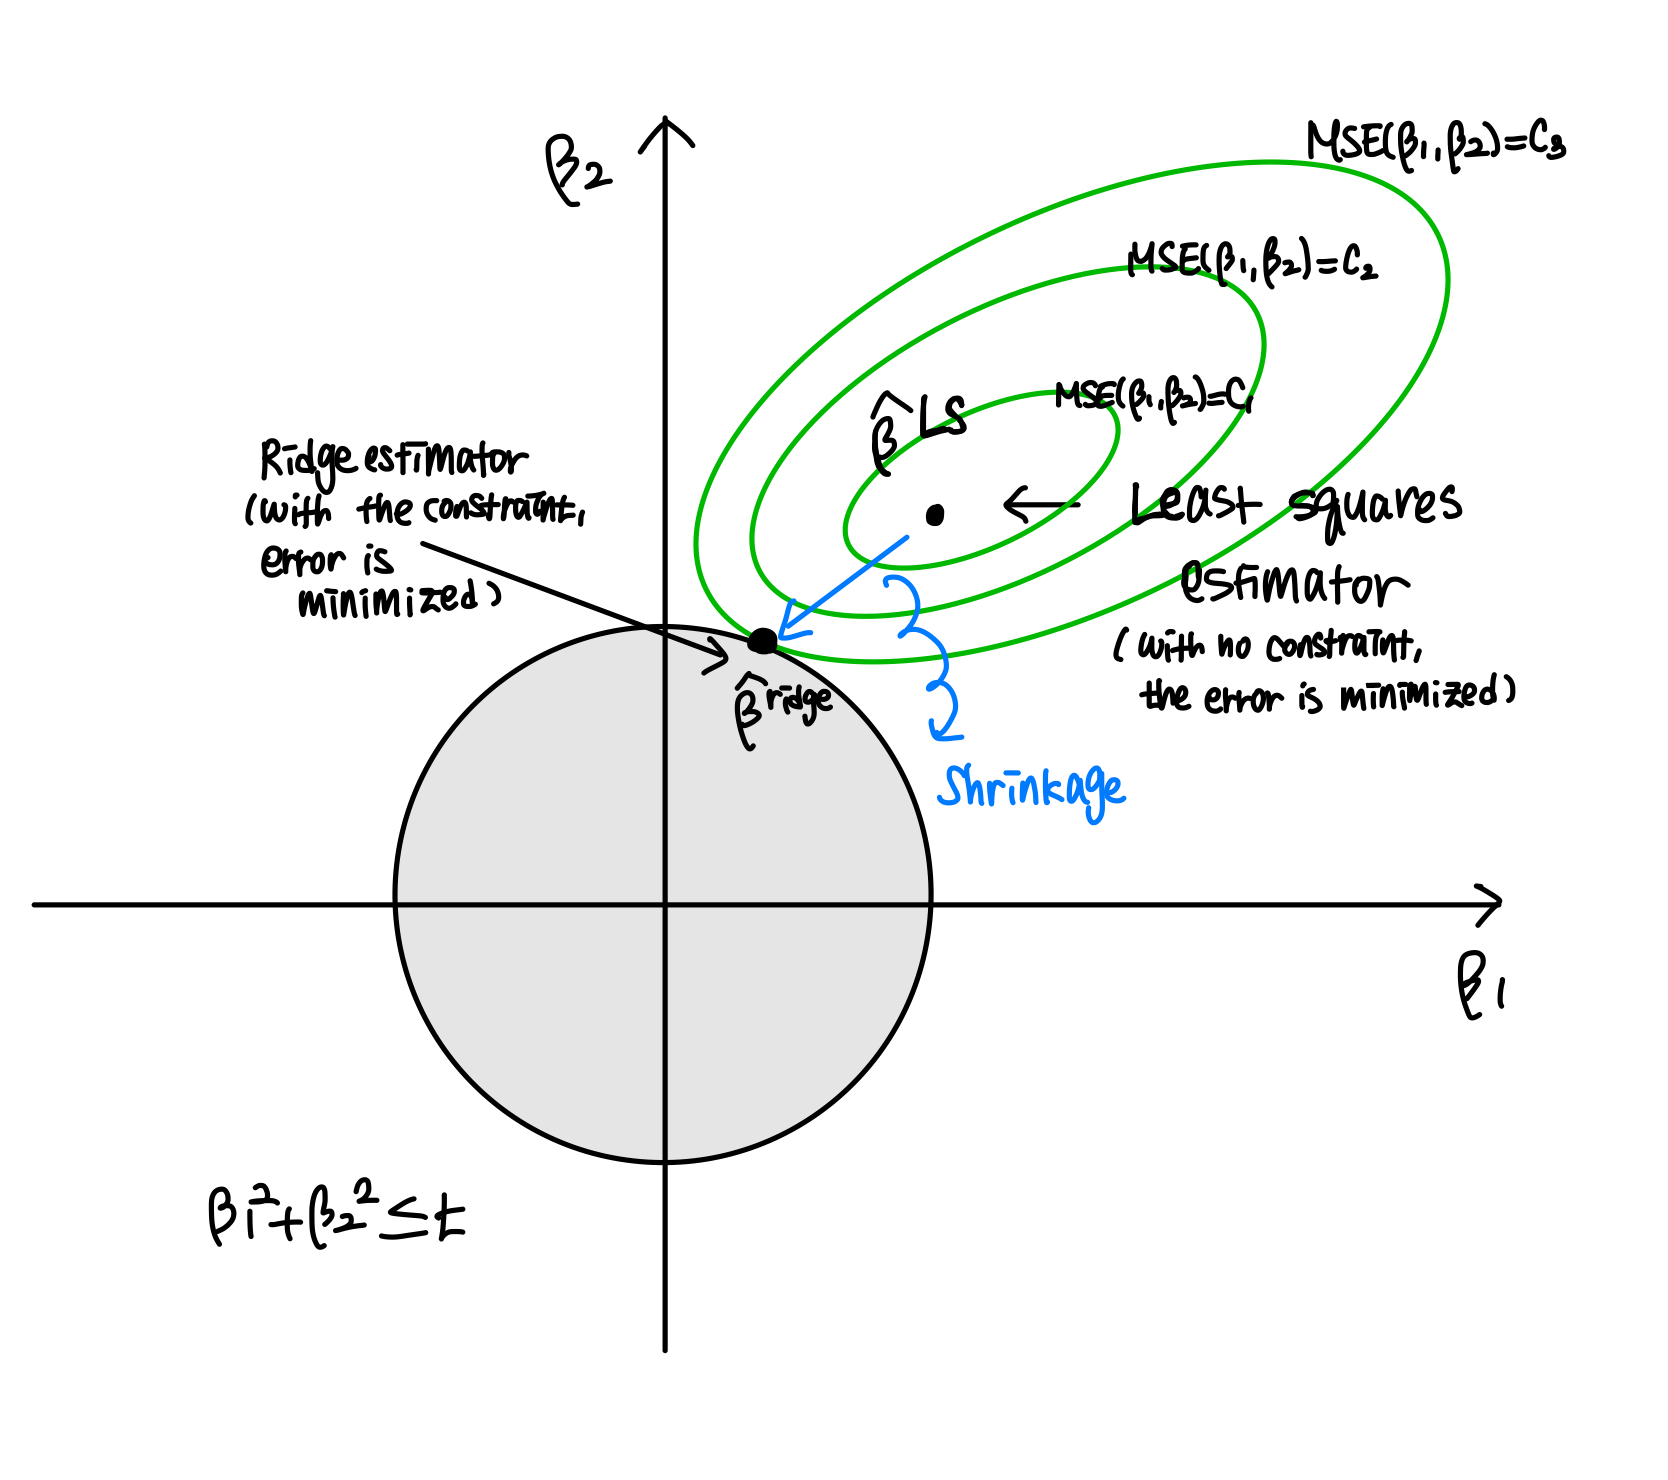 β₂
MSE(β₁,β₂)=C₃
MSE(β₁,β₂)=C₂
MSE(β₁,β₂)=C₁
β̂ LS
Ridge estimator
(with the constraint,
error is
minimized)
← Least squares
estimator
(with no constraint,
the error is minimized)
β̂ ridge
Shrinkage
β₁
β₁²+β₂²≤t